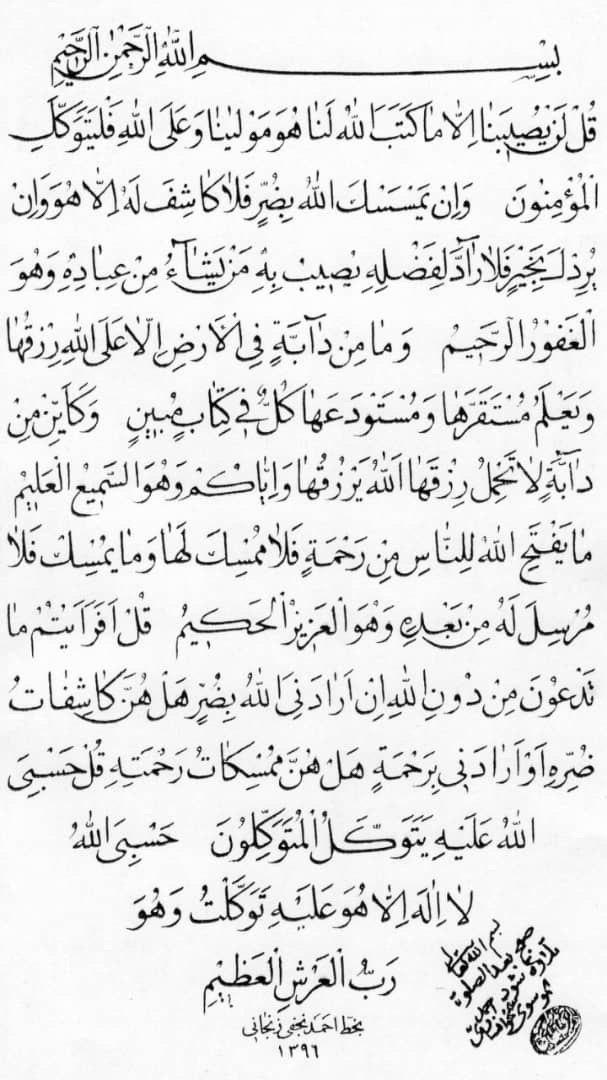 بِسْمِ اللهِ الرَّحْمٰنِ الرَّحِيْمِ
قُلْ لَنْ يُصِيبَنٰا اِلّٰا مٰا كَتَبَ اللهُ لَنٰا هُوَ مَوْلٰينٰا وَعَلَى اللهِ فَلْيَتَوَكَّلِ
الْمُؤْمِنُونَ وَاِنْ يَمْسَسْكَ اللهُ بِضُرٍّ فَلٰا كٰاشِفَ لَهُ اِلّٰا هُوَ وَاِنْ
يُرِدْكَ بِخَيْرٍ فَلٰا رٰآدَّ لِفَضْلِهِ يُصِيبُ بِهِ مَنْ يَشٰآءُ مِنْ عِبٰادِهِ وَهُوَ
الْغَفُورُ الرَّحِيمُ وَمٰا مِنْ دٰآبَّةٍ فِي الْاَرْضِ اِلّٰا عَلَى اللهِ رِزْقُهٰا
وَيَعْلَمُ مُسْتَقَرَّهٰا وَمُسْتَوْدَعَهٰا كُلٌّ فِي كِتٰابٍ مُبِينٍ وَكَاَيِّنْ مِنْ
دٰابَّةٍ لٰا تَحْمِلُ رِزْقَهَا اَللهُ يَرْزُقُهٰا وَاِيّٰاكُمْ وَهُوَ السَّمِيعُ الْعَلِيمُ
مٰا يَفْتَحِ اللهُ لِلنّٰاسِ مِنْ رَحْمَةٍ فَلٰا مُمْسِكَ لَهٰا وَمٰا يُمْسِكْ فَلٰا
مُرْسِلَ لَهُ مِنْ بَعْدِهِ وَهُوَ الْعَزِيزُ الْحَكِيمُ قُلْ اَفَرَاَيْتُمْ مٰا
تَدْعُونَ مِنْ دُونِ اللهِ اِنْ اَرٰادَنِيَ اللهُ بِضُرٍّ هَلْ هُنَّ كٰاشِفٰاتُ
ضُرِّهِ اَوْ اَرٰادَنِي بِرَحْمَةٍ هَلْ هُنَّ مُمْسِكٰاتُ رَحْمَتِهِ قُلْ حَسْبِيَ
اللهُ عَلَيْهِ يَتَوَكَّلُ الْمُتَوَكِّلُونَ حَسْبِيَ اللهُ
لٰا اِلٰهَ اِلّٰا هُوَ عَلَيْهِ تَوَكَّلْتُ وَهُوَ
رَبُّ الْعَرْشِ الْعَظِيْمِ
بخط احمد نجفی زنجانی
۱۳۹۶
بسم الله تعالی